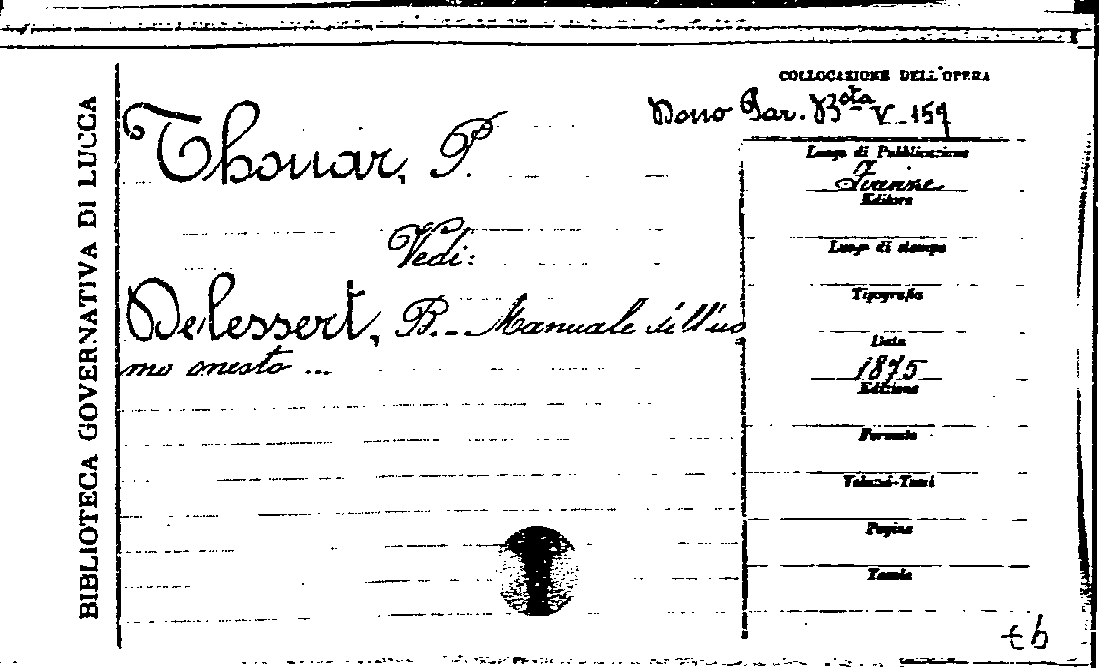 BIBLIOTECA GOVERNATIVA DI LUCCA
COLLOCAZIONE DELL'OPERA
Dono Par. B.ta V. 159
Thouar, P.
Vedi:
Delessert, B. - Manuale dell'uo
mo onesto ...
Luogo di Pubblicazione
Firenze
Editore
Luogo di stampa
Tipografia
Data
1875
Edizione
Formato
Volumi-Tomi
Pagine
Tavole